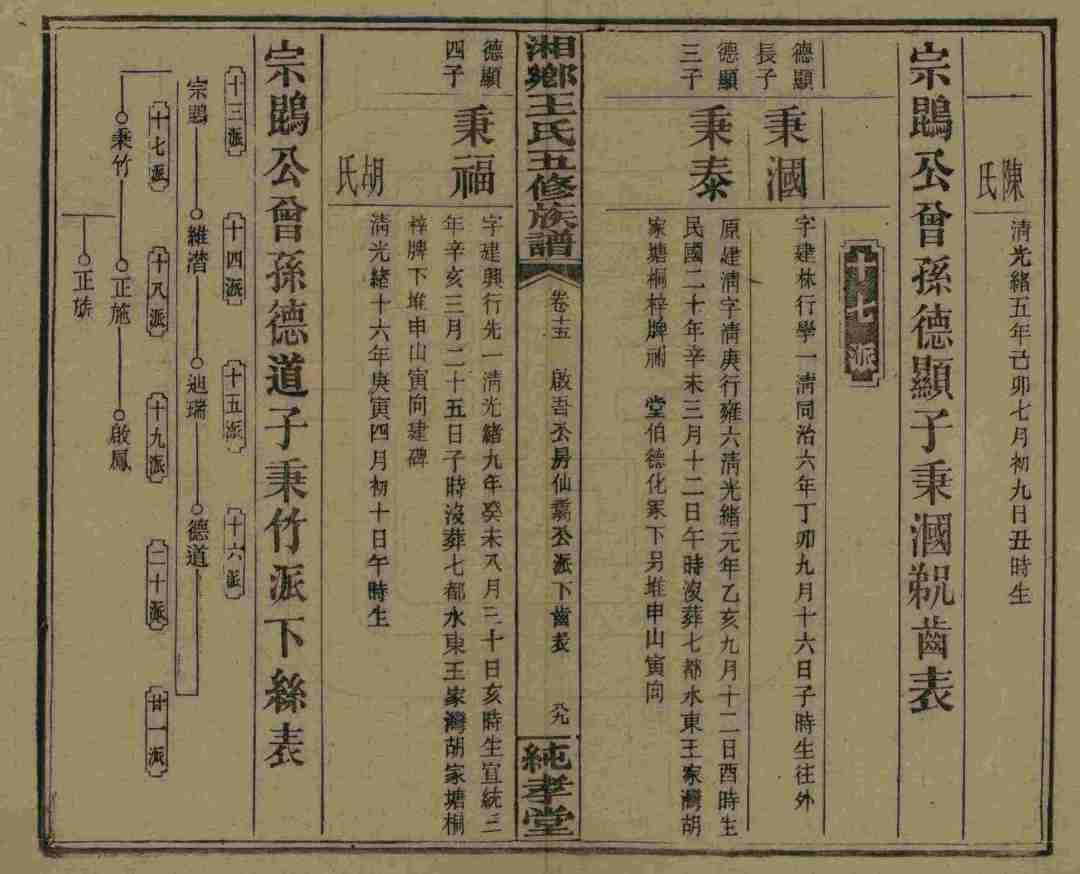 陳氏
清光緒五年己卯七月初九日丑時生
宗鵾公曾孫德顯子秉漍派齒表
十七派
德顯長子
秉漍
字建林行學一清同治六年丁卯九月十六日子時生往外
德顯三子
秉泰
原建清字清庚行雍六清光緒元年乙亥九月十二日酉時生
民國二十年辛未三月十二日午時沒葬七都水東王家灣胡
家塘桐梓牌 堂伯德化冢下另堆申山寅向
湘鄉王氏五修族譜
卷十五
啟吾公房仙霸公派下齒表
九
純孝堂
德顯四子
秉福
字建興行先一清光緒九年癸未八月二十日亥時生宣統三
年辛亥三月二十五日子時沒葬七都水東王家灣胡家塘桐
梓牌下堆申山寅向建碑
胡氏
清光緒十六年庚寅四月初十日午時生
宗鵾公曾孫德道子秉竹派下絲表
十三派
十四派
十五派
十六派
宗鵾
維潛
迪瑞
德道
十七派
十八派
十九派
二十派
廿一派
秉竹
正施
啟鳳
正族